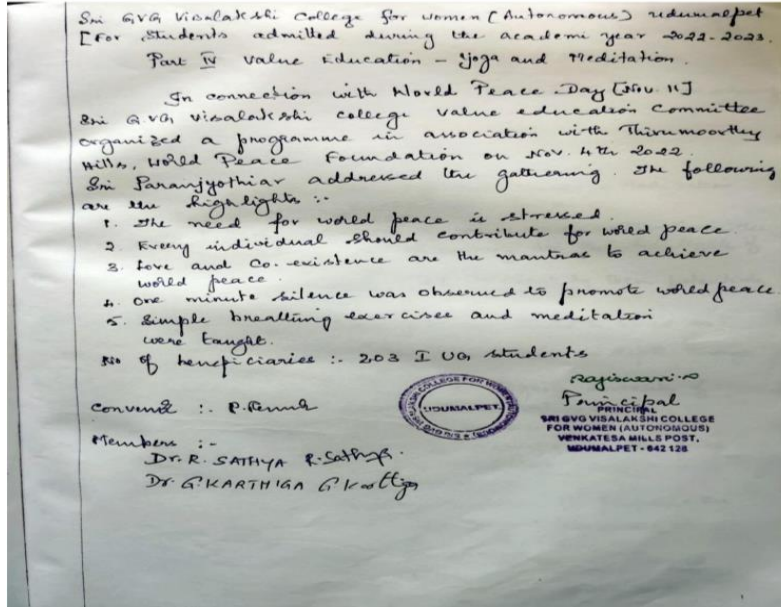 Sri GVG Visalakshi College for women (Autonomous) udumalpet
[For students admitted during the academi year 2022-2023.
Part IV Value Education - Yoga and Meditation.
In connection with World Peace Day [Nov. 11]
Sri G.VG Visalakshi college value education Committee
organized a programme in association with Thirumoorthy
Hills, World Peace Foundation on Nov. 4th 2022.
Sri Paranjyothiar addressed the gathering. The following
are the highlights :-
1. The need for world peace is stressed.
2. Every individual should contribute for world peace.
3. Love and Co-existence are the mantras to achieve
world peace.
4. One minute silence was observed to promote world peace.
5. Simple breathing exercises and meditation
were taught.
No of beneficiaries :- 203 I UG students
Convenor :. P.
Members :-
Dr. R. SATHYA R. Sathya.
Dr. G. KARTHIGA G Karthiga
COLLEGE FOR WOMEN
UDUMALPET.
Rajiswari.
Principal
PRINCIPAL
SRI GVG VISALAKSHI COLLEGE
FOR WOMEN (AUTONOMOUS)
VENKATESA MILLS POST,
UDUMALPET - 642 128